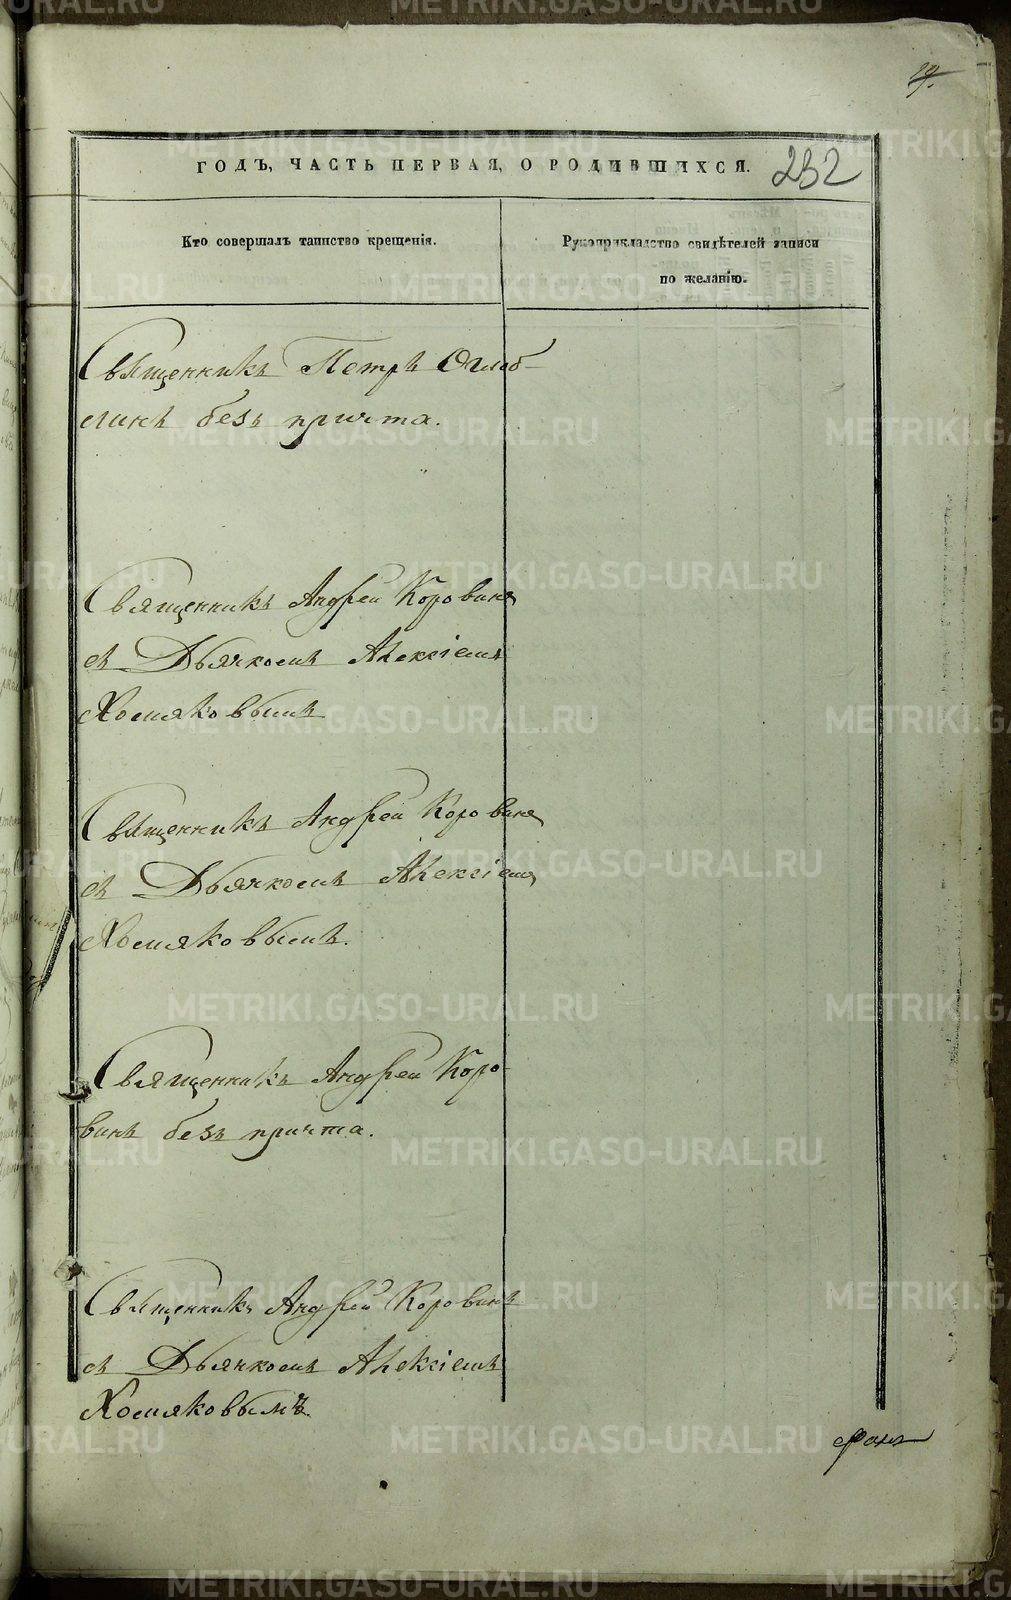 19.
ГОДЪ, ЧАСТЬ ПЕРВАЯ, О РОДИВШИХСЯ.
232
Кто совершалъ таинство крещенія.
Рукоприкладство свидѣтелей записи
по желанію.
Священникъ Петръ Оглоб-
линъ безъ причта.
Священникъ Андрей Коровинъ
съ Дьячкомъ Алексіемъ
Хомяковымъ
Священникъ Андрей Коровинъ
съ Дьячкомъ Алексіемъ
Хомяковымъ.
Священникъ Андрей Коро-
винъ безъ причта.
Священникъ Андрей Коровинъ
съ Дьячкомъ Алексіемъ
Хомяковымъ.
METRIKI.GASO-URAL.RU